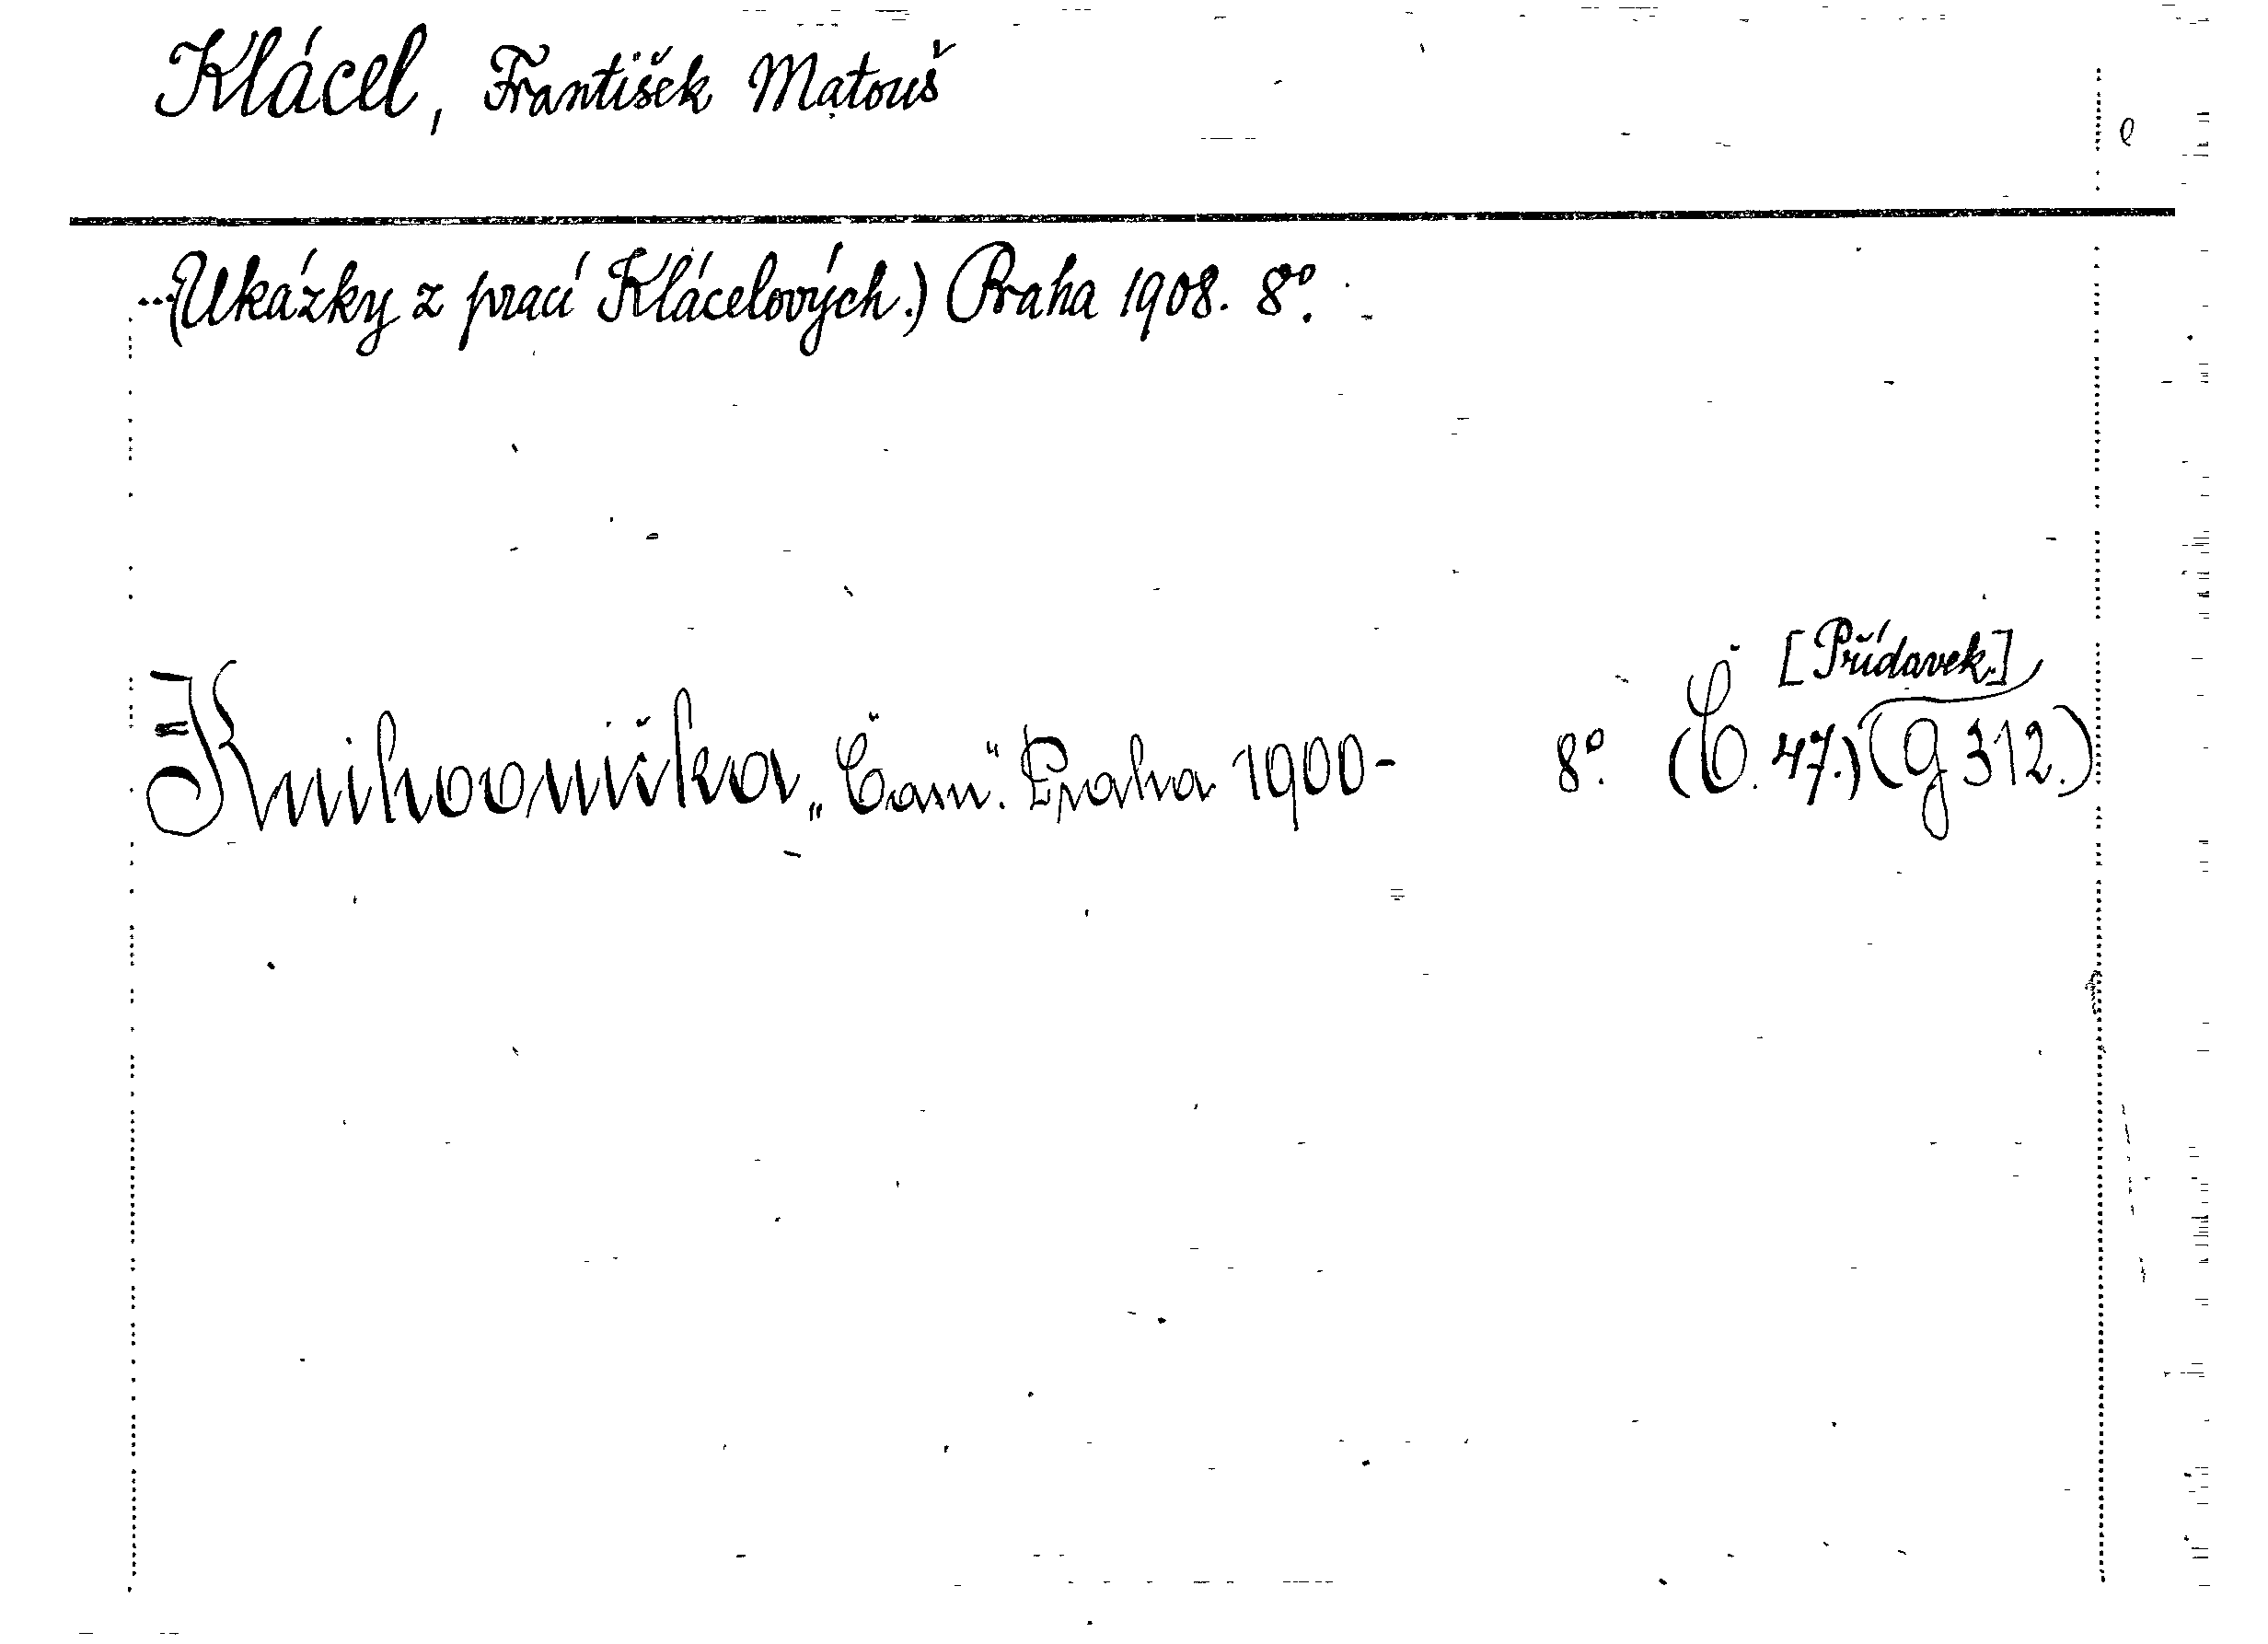 Klácel, František Matouš
...(Ukázky z prací Klácelových.) Praha 1908. 8°.
[Přídavek]
Knihovnička „Času“. Praha 1900- 8°. (Č. 47.) (G 312.)